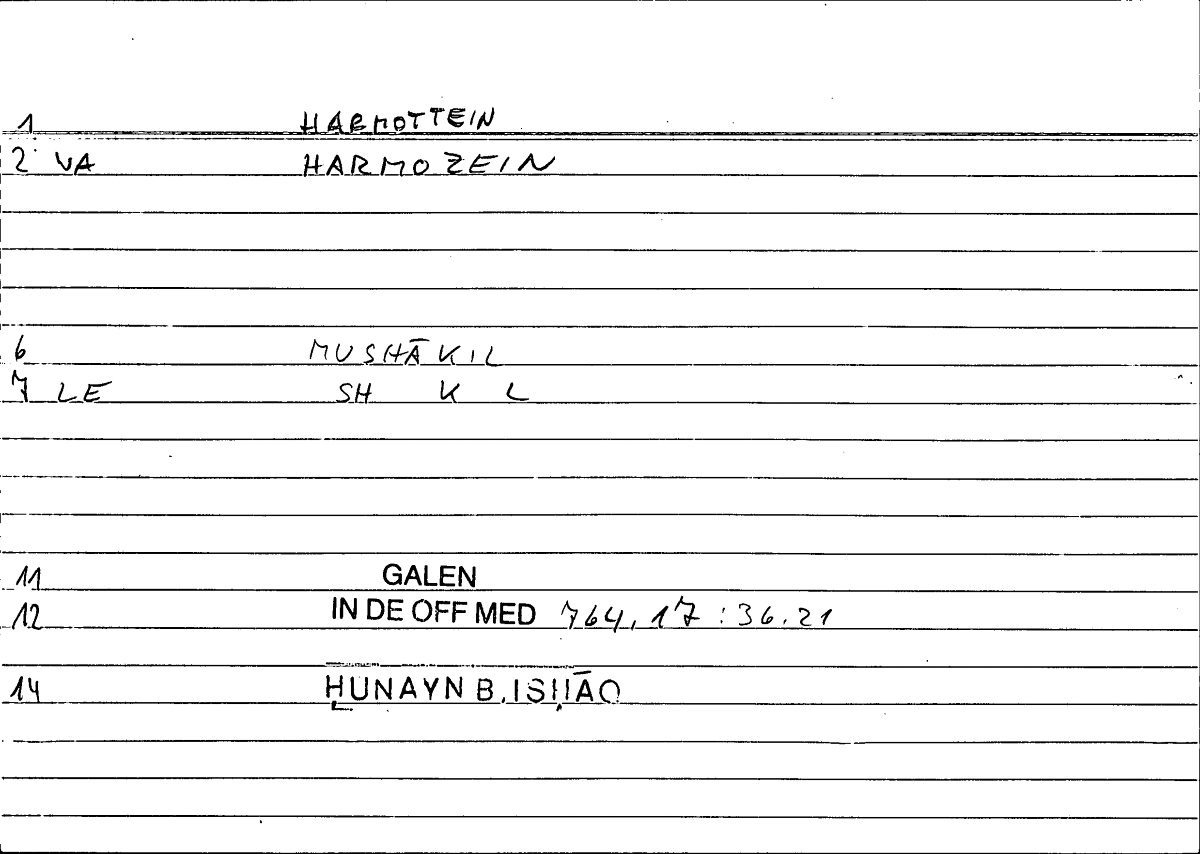 1 HARMOTTEIN
2 VA HARMOZEIN
6 MUSHĀKIL
7 LE SH K L
11 GALEN
12 IN DE OFF MED 764,17:36.21
14 ḤUNAYN B. ISḤĀQ